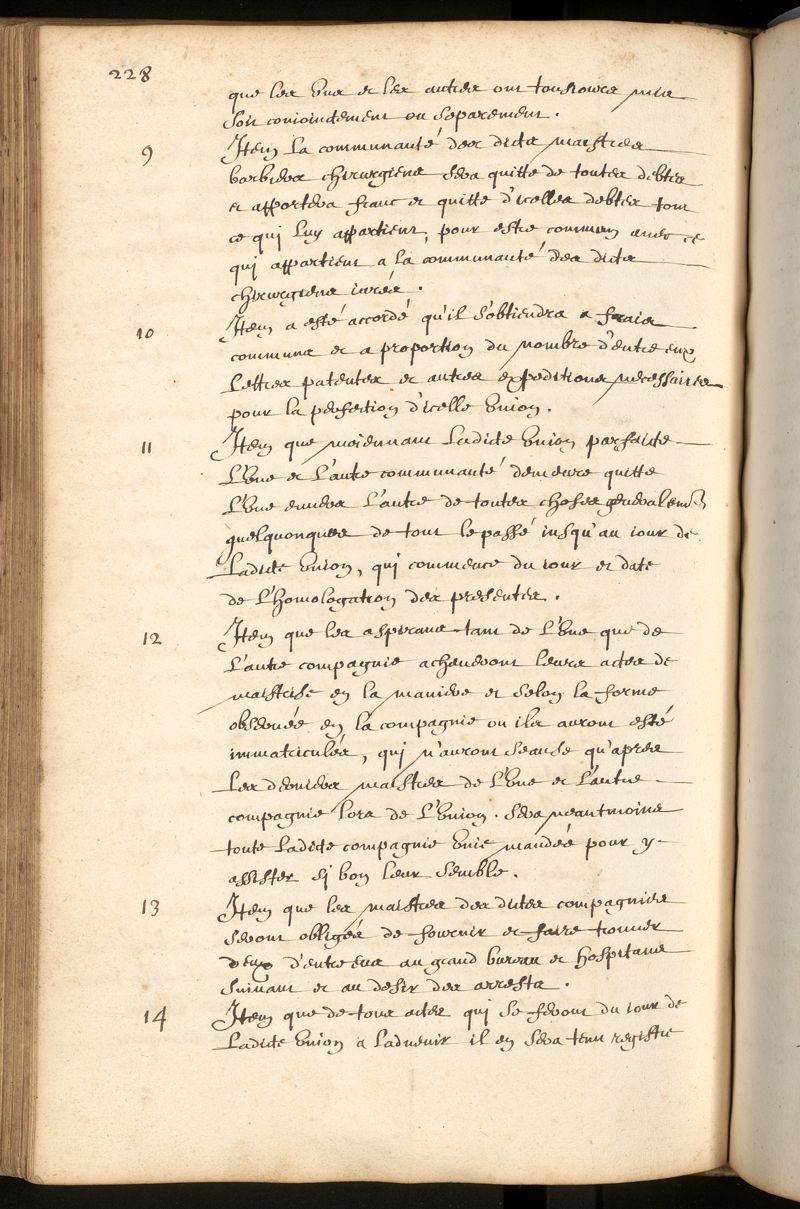 228
que les uns et les autres ont tousiours mis
soit conioinctement ou separement.
9 Item la communauté des dits maistres
barbiers chirurgiens sera quitte de toutes debtes
et apportera franc et quitte d'icelles debtes tout
ce qui luy appartient, pour estre commun avec ce
qui appartient a la communauté des dits
chirurgiens iurés.
10 Item a esté accordé qu'il s'obtiendra a frais
communs et a proportion du nombre d'entre eux
Lettres patentes et autres expeditions necessaires
pour la perfection d'icelle Union.
11 Item que moiennant Ladicte Union parfaicte
L'une et L'autre communauté demeure quitte
L'une envers L'autre de toutes choses generalemt
quelquonques de tout le passé iusqu'au iour de
Ladicte Union, qui commence du iour et date
de L'homologation des presentes.
12 Item que les aspirans tant de L'une que de
L'autre compagnie acheveront leurs actes de
maistrise en la maniere et selon la forme
observée en la compagnie ou ils auront esté
immatriculés, qui n'auront seance qu'apres
Les derniers maistres de L'une et L'autre
compagnie lors de L'Union. sera neantmoins
toute Ladicte compagnie Unie mandée pour y
assister si bon leur semble.
13 Item que les maistres des dites compagnies
seront obligés de fournir et faire trouver
deux d'entre eux au grand bureau et hospitaux
suivant et au desir des arrests.
14 Item que de tous actes qui se feront du iour de
Ladicte Union a Ladvenir il en sera tenu registre